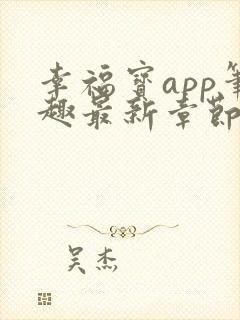 幸福宝app笔
趣最新章节
吴杰